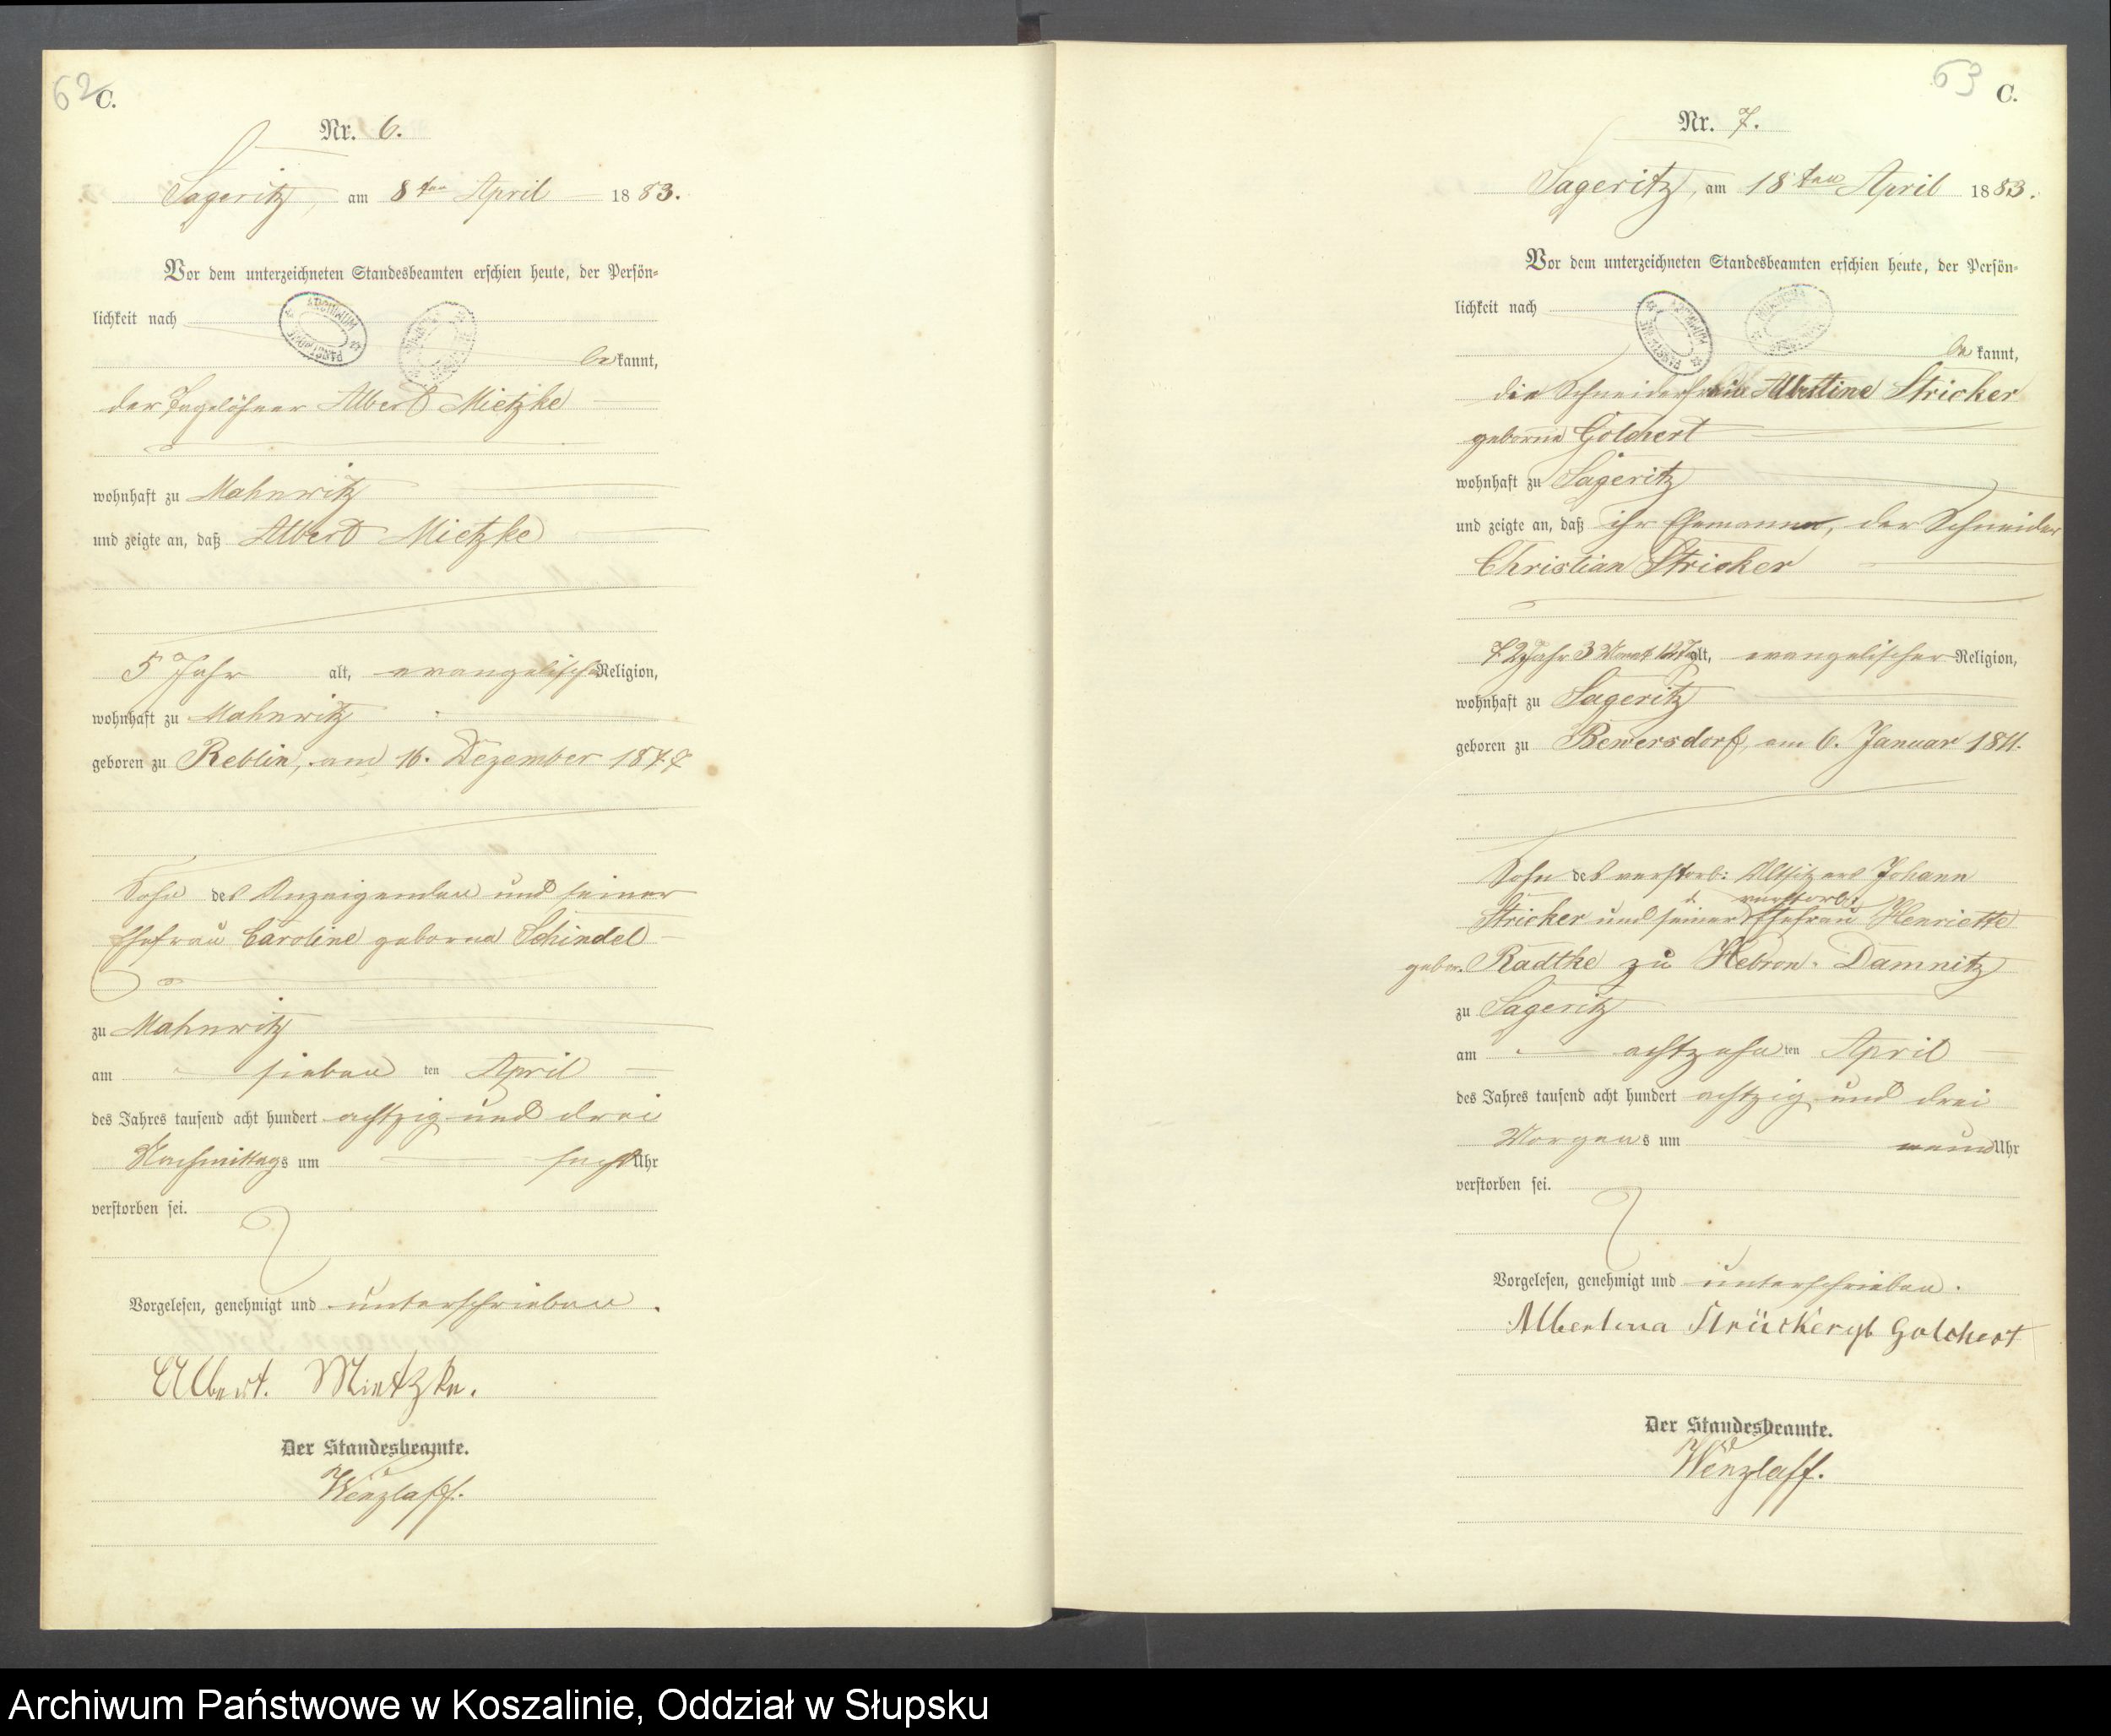 62
C.
Nr. 6.
Sageritz, am 8ten April 1883.
Vor dem unterzeichneten Standesbeamten erschien heute, der Persön-
lichkeit nach
bekannt,
der Tagelöhner Albert Mietzke
wohnhaft zu Mahnwitz
und zeigte an, daß Albert Mietzke
5 Jahr alt, evangelisch Religion,
wohnhaft zu Mahnwitz
geboren zu Reblin, am 16. Dezember 1877
Sohn des Anzeigenden und seiner
Ehefrau Caroline geborne Schindel
zu Mahnwitz
am sieben ten April
des Jahres tausend acht hundert achtzig und drei
Nachmittags um sechs Uhr
verstorben sei.
Vorgelesen, genehmigt und unterschrieben.
Albert. Mietzke.
Der Standesbeamte.
Wenzlaff.
63
C.
Nr. 7.
Sageritz, am 18ten April 1883.
Vor dem unterzeichneten Standesbeamten erschien heute, der Persön-
lichkeit nach
bekannt,
die Schneiderfrau Albertine Stricker
geborne Golchert
wohnhaft zu Sageritz
und zeigte an, daß ihr Ehemann, der Schneider
Christian Stricker
72 Jahr 3 Monat 12 Tg alt, evangelischer Religion,
wohnhaft zu Sageritz
geboren zu Bewersdorf, am 6. Januar 1811.
Sohn des verstorb: Altsitzers Johann
Stricker und seiner verstorb. Ehefrau Henriette
gebor. Radtke zu Hebron-Damnitz
zu Sageritz
am achtzehn ten April
des Jahres tausend acht hundert achtzig und drei
Morgens um neun Uhr
verstorben sei.
Vorgelesen, genehmigt und unterschrieben.
Albertina Strücker gb Golchert
Der Standesbeamte.
Wenzlaff.
Archiwum Państwowe w Koszalinie, Oddział w Słupsku